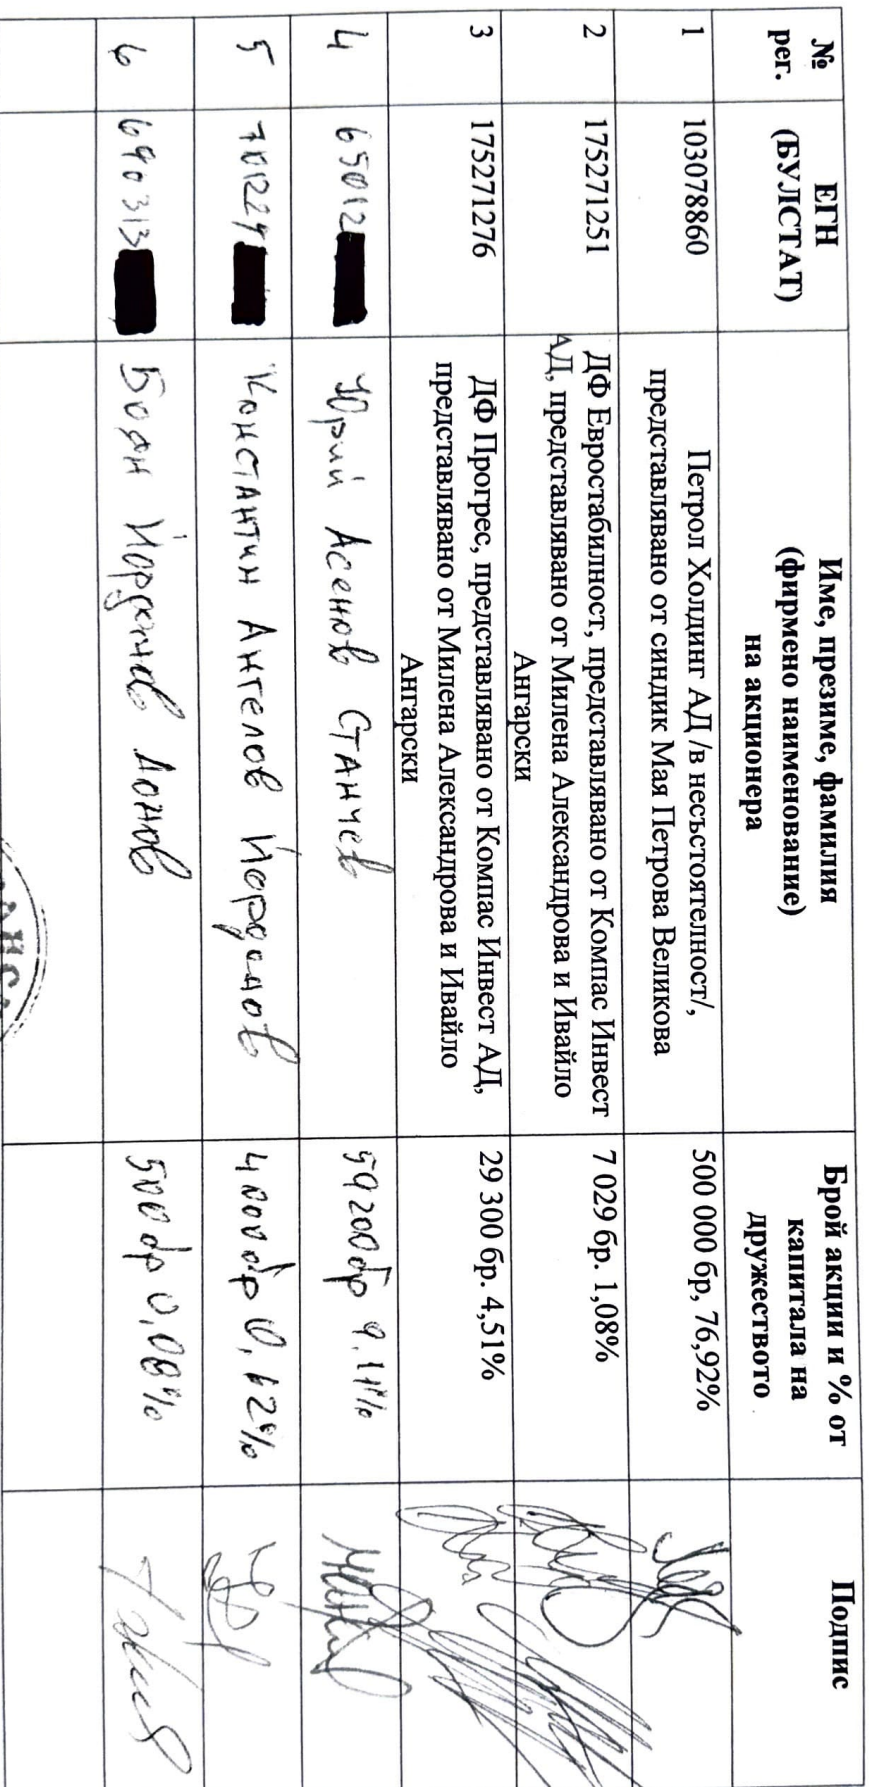 № рег.
ЕГН (БУЛСТАТ)
Име, презиме, фамилия
(фирмено наименование)
на акционера
Брой акции и % от
капитала на
дружеството
Подпис
1
103078860
Петрол Холдинг АД /в несъстоятелност/,
представлявано от синдик Мая Петрова Великова
500 000 бр, 76,92%
2
175271251
ДФ Евростабилност, представлявано от Компас Инвест
АД, представлявано от Милена Александрова и Ивайло
Ангарски
7 029 бр. 1,08%
3
175271276
ДФ Прогрес, представлявано от Компас Инвест АД,
представлявано от Милена Александрова и Ивайло
Ангарски
29 300 бр. 4,51%
4
65012
Юрий Асенов Станчев
59200бр 9.11%
5
701224
Константин Ангелов Йорданов
4000бр 0,62%
6
690313
Боян Йорданов Донов
500бр 0,08%